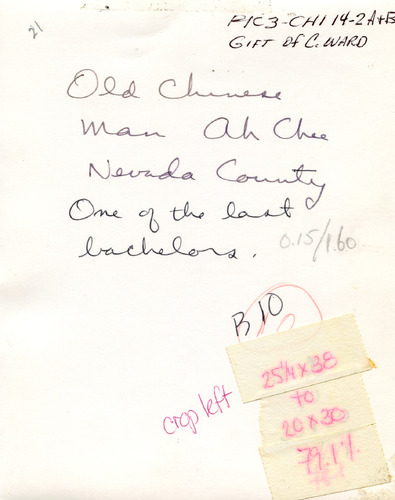 21
PIC3-CHI 14-2 A+B
GIFT of C. WARD
Old Chinese
man Ah Chee
Nevada County
One of the last
bachelors.
0.15/1.60
B10
crop left
25 1/4 x 38
to
20 x 30
79.1%